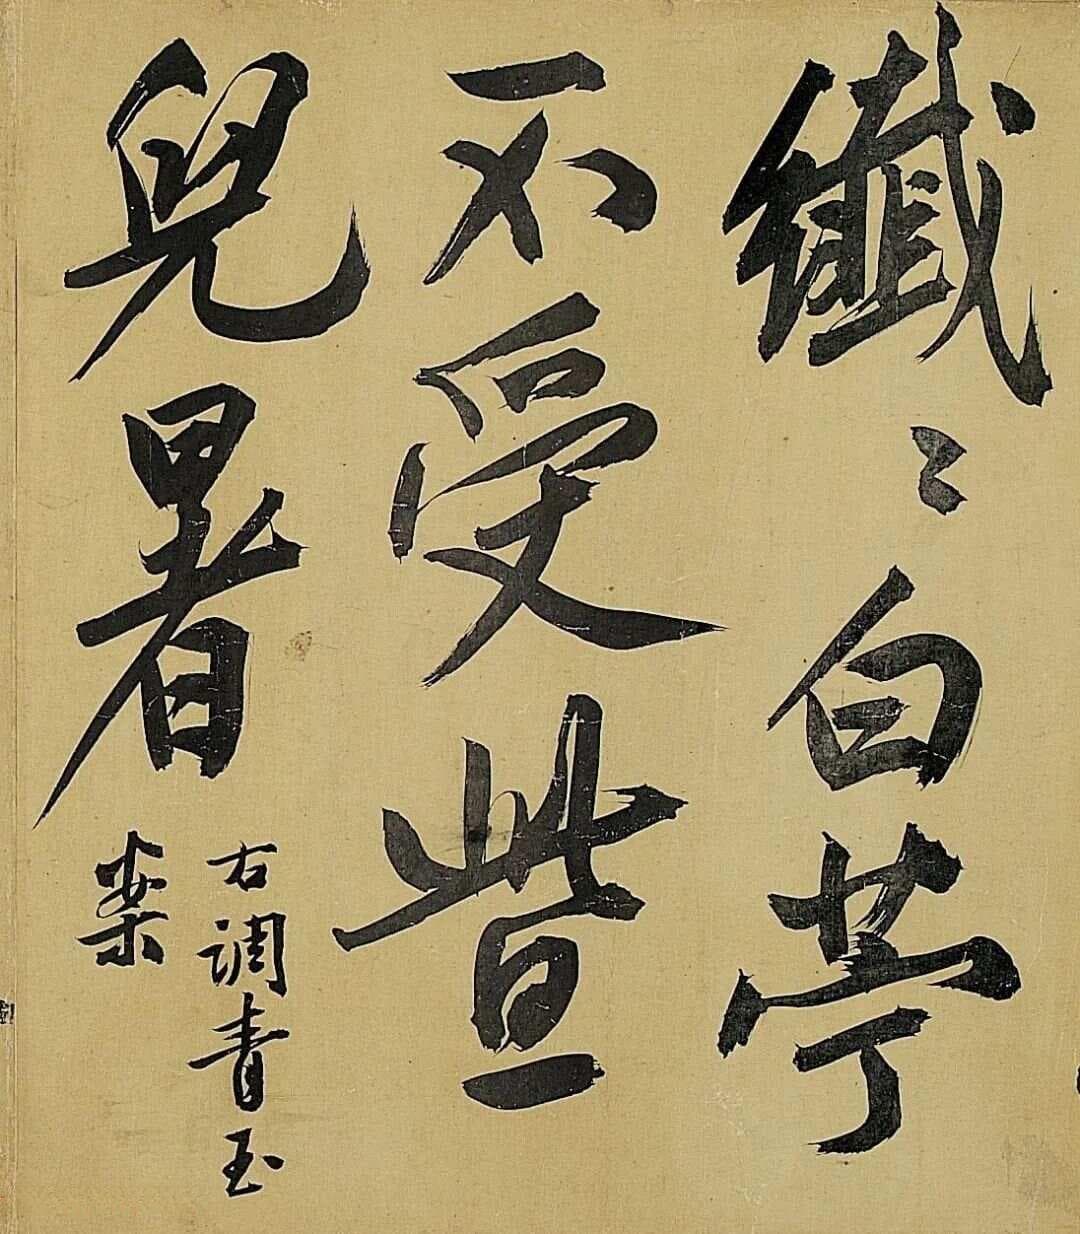 纖〻白苧
不受些
兒暑
右調青玉
案